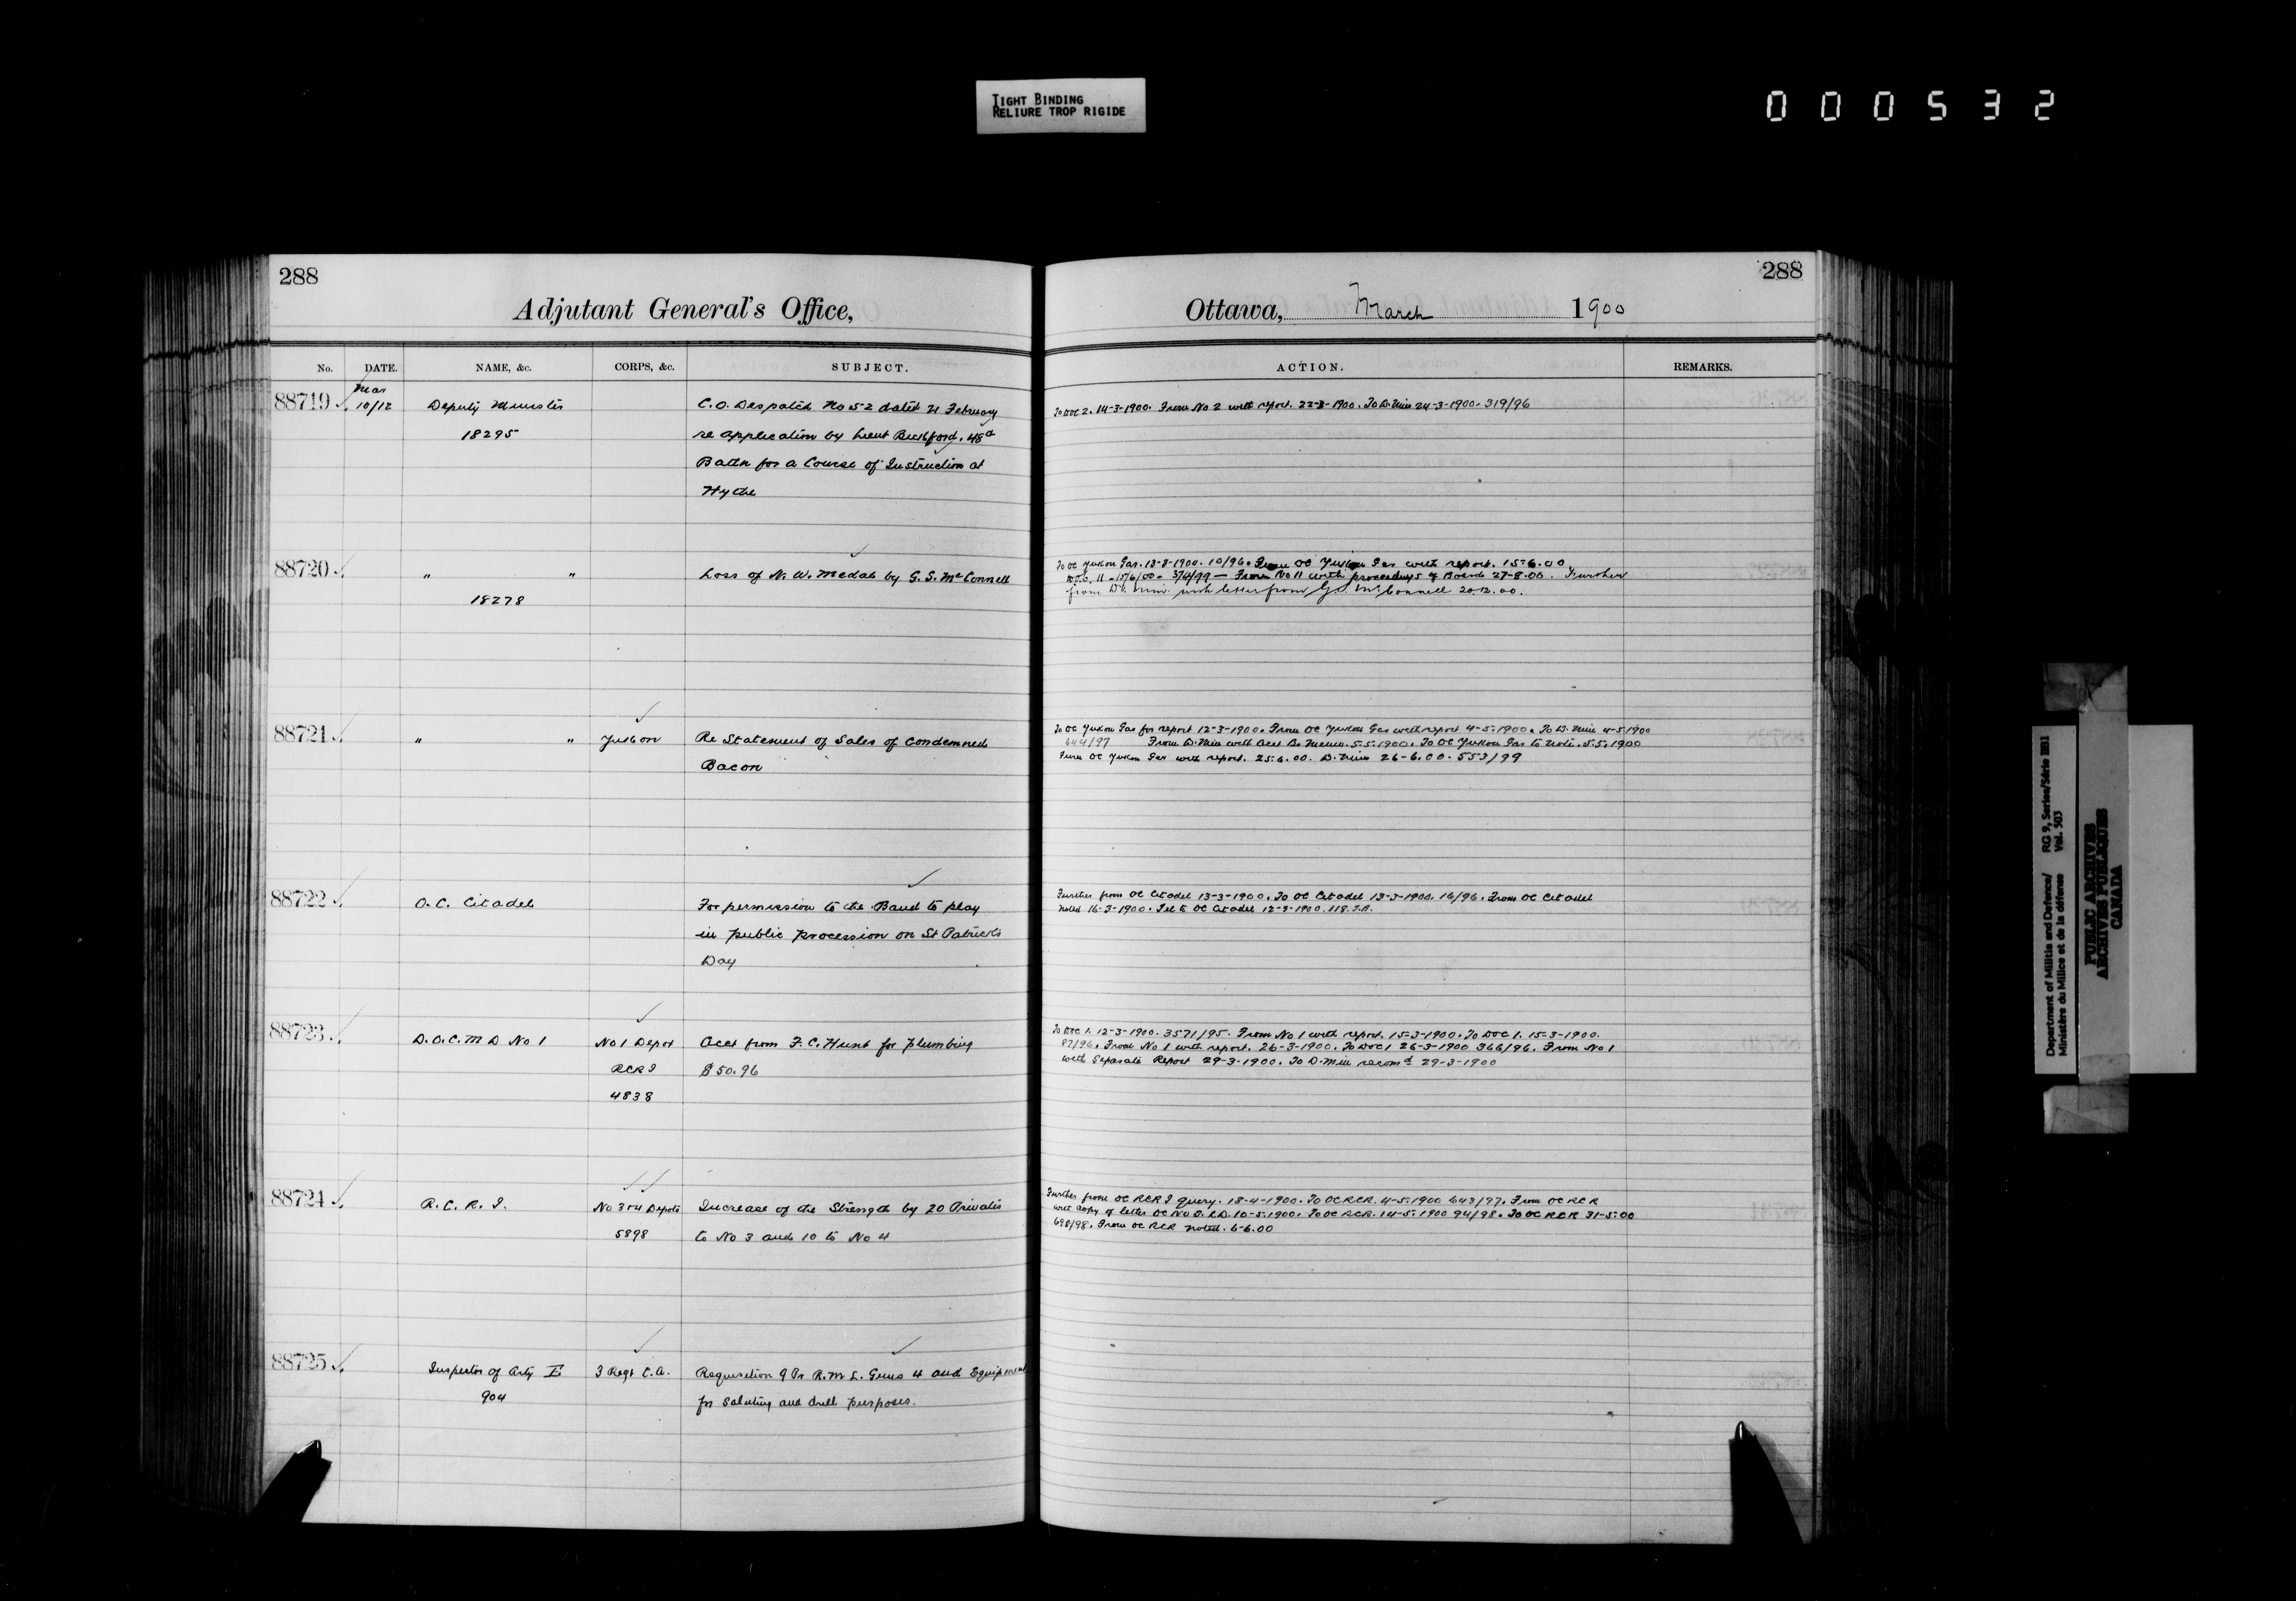 TIGHT BINDING
RELIURE TROP RIGIDE
000532
288
Adjutant General's Office,
No. DATE. NAME, &c. CORPS, &c. SUBJECT.
88719 Mar 10/12 Deputy Minister C.O. Despatch No 52 dated 21 February
18295 re application by Lieut 48th
Battn for a Course of Instruction at
Hythe
88720 " " Loss of N. W. Medals by G. S. McConnell
18278
88721 " " Yukon Re Statement of Sales of Condemned
Bacon
88722 O.C. Citadel For permission to the Band to play
in public procession on St Patricks
Day
88723 D.O.C. M D No 1 No 1 Depot Acct from F. C. Hunt for plumbing
RCRI $50.96
4838
88724 R.C.R.I. No 3 & 4 Depots Increase of the Strength by 20 Privates
5898 to No 3 and 10 to No 4
88725 Inspector of Arty E 3 Regt C.A. Requisition 9 Pr R.M.L. Guns 4 and Equipment
904 for Saluting and drill purposes.
288
Ottawa, March 1900
ACTION. REMARKS.
To DOC 2. 14-3-1900. From No 2 with report. 22-3-1900. To D. Min 24-3-1900. 319/96
To OC Yukon Gar. 13-3-1900. 10/96. From OC Yukon Gar with report. 15.6.00
D.O.C. 11 - 15/6/00 - 374/99 — From No 11 with proceedings of Board 27-8.00. Further
from D. Min. with letter from G.S. McConnell 20.12.00.
To OC Yukon Gar for report 12-3-1900. From OC Yukon Gar with report 4-5-1900. To D. Min 4-5-1900
644/97 From D. Min with Acct Br Memo. 5.5.1900. To OC Yukon Gar to note. 5.5.1900
From OC Yukon Gar with report. 25.6.00. D. Min 26-6.00. 553/99
Further from OC Citadel 13-3-1900. To OC Citadel 13-3-1900. 16/96. From OC Citadel
noted 16-3-1900. Tel to OC Citadel 12-3-1900. 118.
To DOC 1. 12-3-1900. 3571/95. From No 1 with report. 15-3-1900. To DOC 1. 15-3-1900.
87/96. From No 1 with report. 26-3-1900. To DOC 1 26-3-1900 366/96. From No 1
with Separate Report 29-3-1900. To D. Min recomd 29-3-1900
Further from OC RCRI query. 18-4-1900. To OC RCR. 4-5-1900 643/97. From OC RCR
with copy of letter OC No 10-5-1900. To OC RCR. 14-5-1900 94/98. To OC RCR 31-5-00
698/98. From OC RCR noted. 6-6.00
Department of Militia and Defence/ RG 9, Series/Série IIB1
Ministère du Milice et de la défense Vol. 503
PUBLIC ARCHIVES
ARCHIVES PUBLIQUES
CANADA